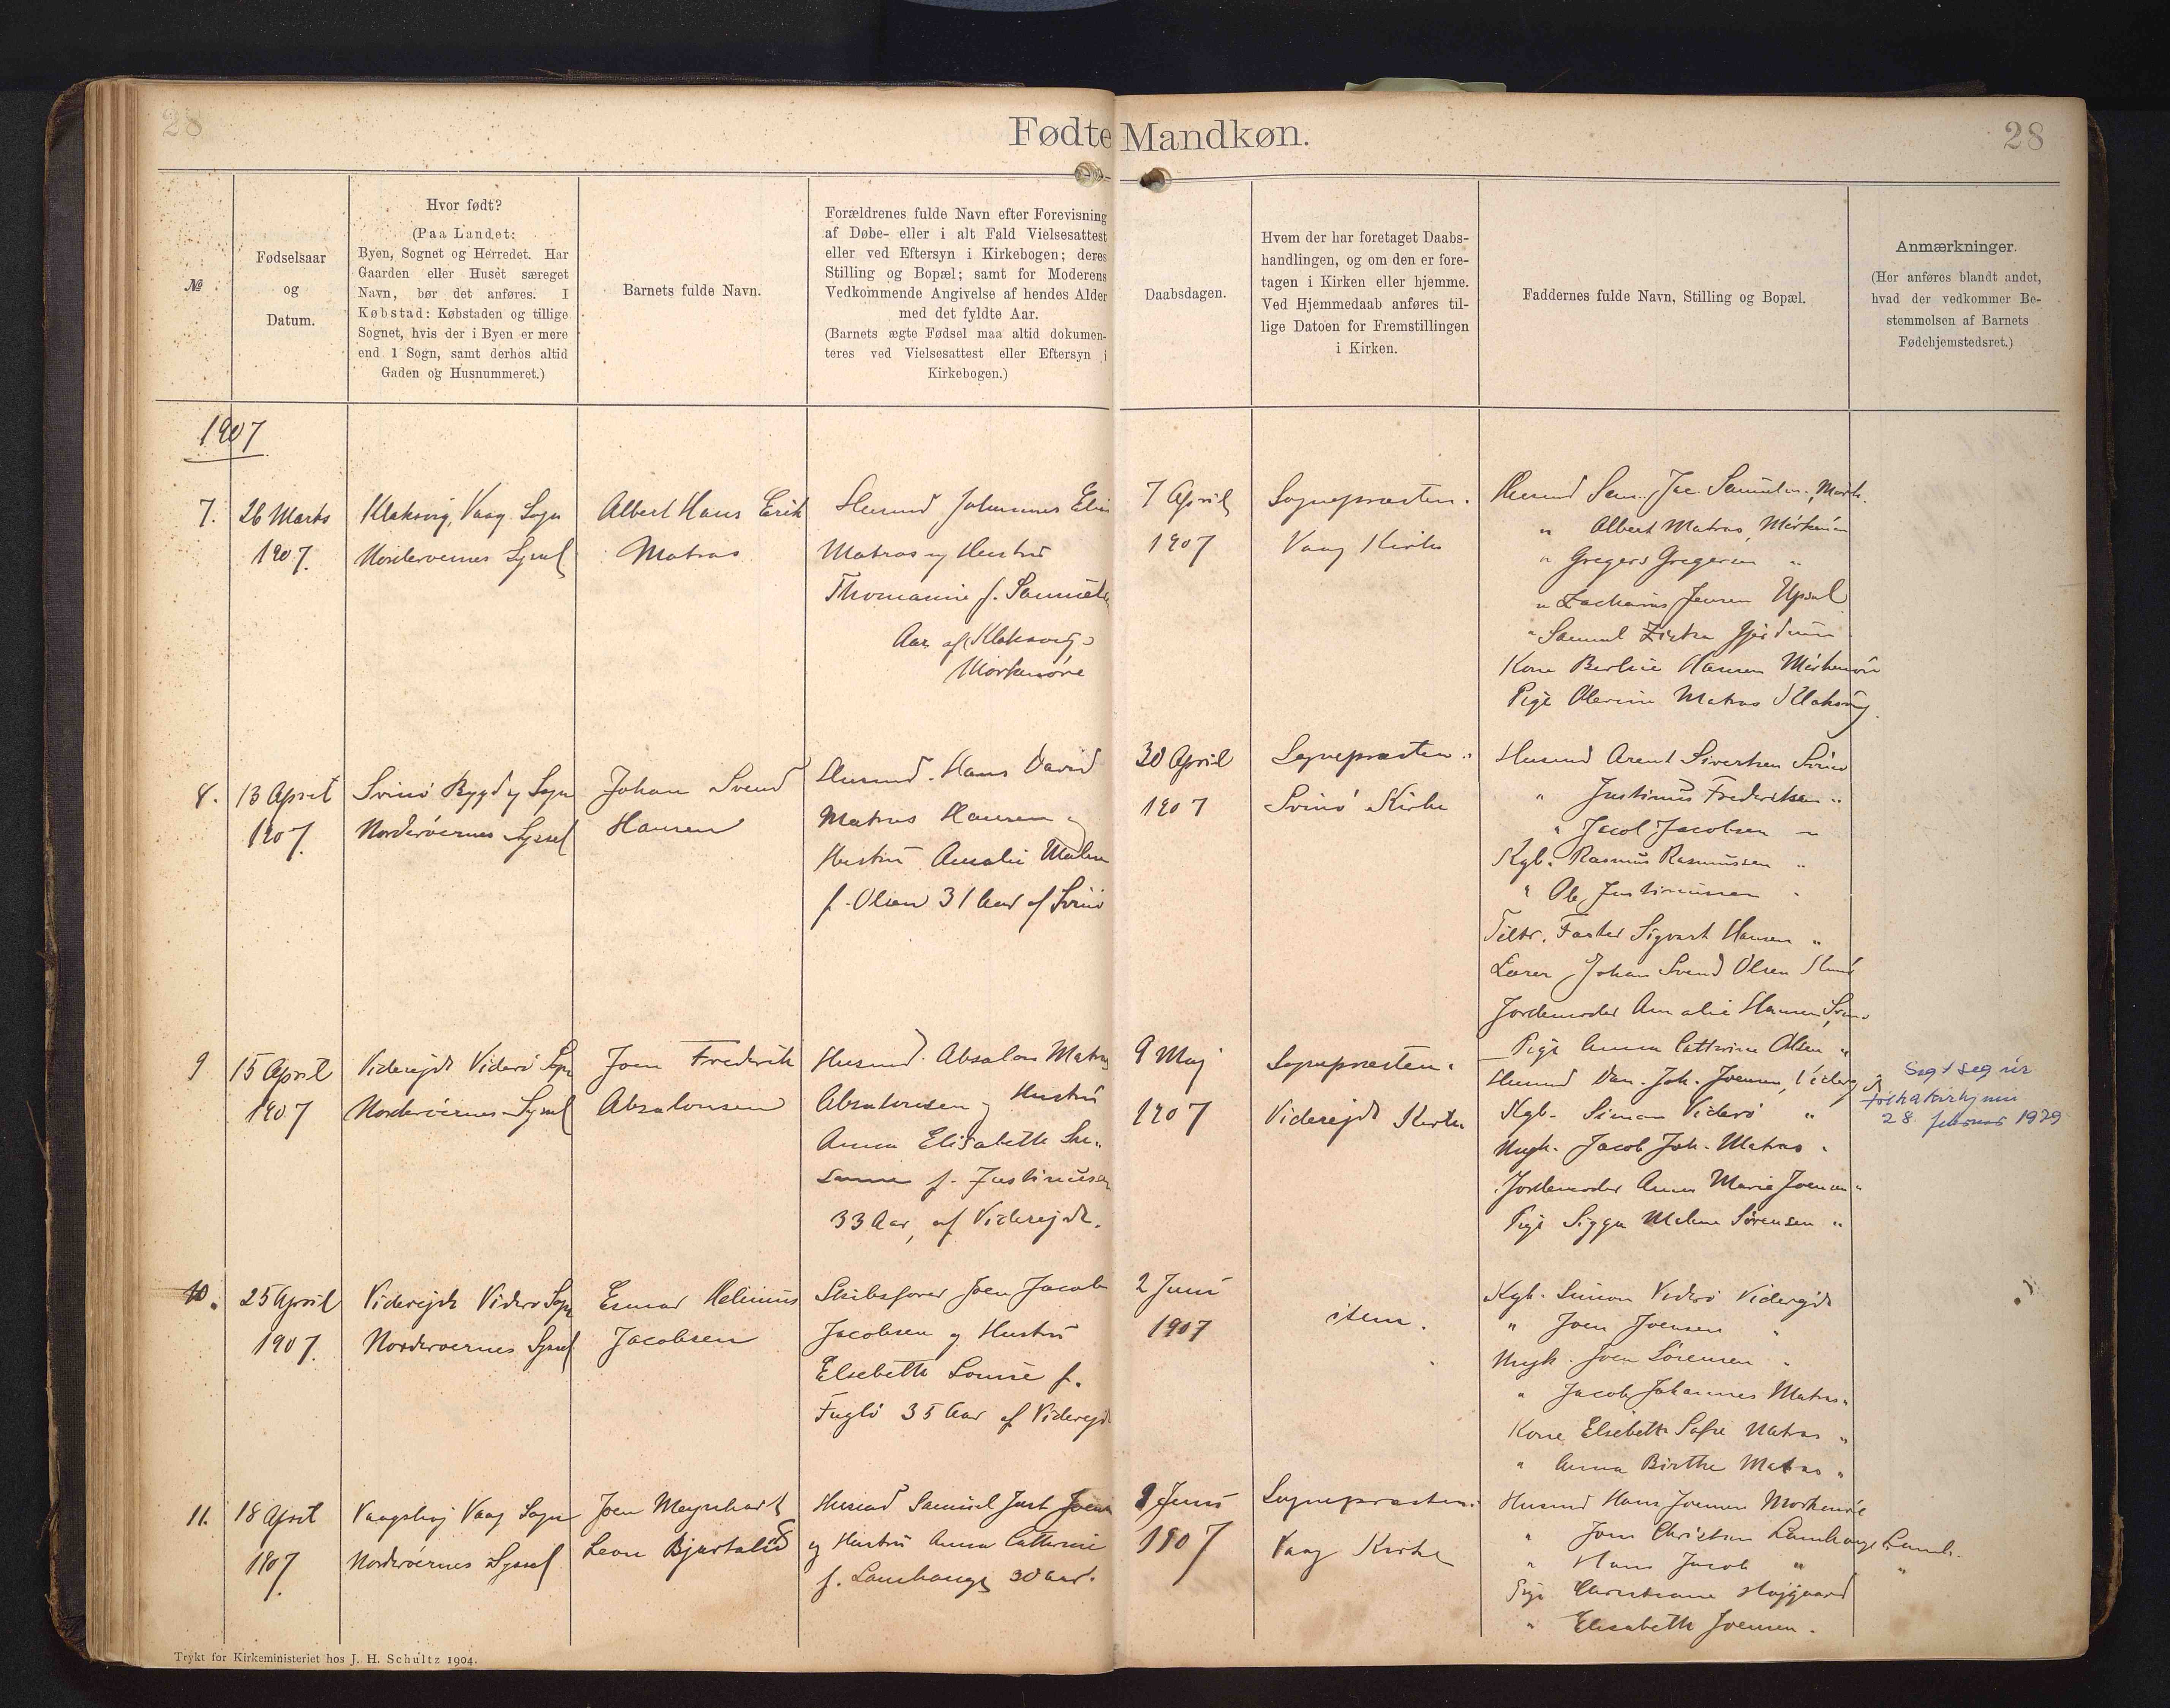 28
Fødte Mandkøn.
28
№
Fødselsaar
og
Datum.
Hvor født?
(Paa Landet:
Byen, Sognet og Herredet. Har
Gaarden eller Huset særeget
Navn, bør det anføres. I
Købstad: Købstaden og tillige
Sognet, hvis der i Byen er mere
end 1 Sogn, samt derhos altid
Gaden og Husnummeret.)
Barnets fulde Navn.
Forældrenes fulde Navn efter Forevisning
af Døbe- eller i alt Fald Vielsesattest
eller ved Eftersyn i Kirkebogen; deres
Stilling og Bopæl; samt for Moderens
Vedkommende Angivelse af hendes Alder
med det fyldte Aar.
(Barnets ægte Fødsel maa altid dokumen-
teres ved Vielsesattest eller Eftersyn i
Kirkebogen.)
Daabsdagen.
Hvem der har foretaget Daabs-
handlingen, og om den er fore-
tagen i Kirken eller hjemme.
Ved Hjemmedaab anføres til-
lige Datoen for Fremstillingen
i Kirken.
Faddernes fulde Navn, Stilling og Bopæl.
Anmærkninger.
(Her anføres blandt andet,
hvad der vedkommer Be-
stemmelsen af Barnets
Fødehjemstedsret.)
1907
7.
26 Marts
1907.
Klaksvig, Vaag Sogn
Norderøernes Syssel
Albert Hans Erik
Matras
Husmd Johannes
Matras og Hustru
Thomasine f. Samuels
Aar af Klaksvig,
Mørkenøre
7 April
1907
Sognepræsten.
Vaag Kirke
Husmd Sam. Jac. Samuelsen, Mørk.
" Albert Matras, Mørkenøre
" Gregers Gregersen "
" Zacharias Jensen Upsal
" Samuel Gjerdum
Kone Berline Hansen Mørkenøre
Pige Olevine Matras Klaksvig.
8.
13 April
1907.
Svinø Bygd og Sogn
Norderøernes Syssel
Johan Svend
Hansen
Husmd. Hans David
Matras Hansen og
Hustru Amalie Malene
f. Olsen 31 Aar af Svinø
30 April
1907
Sognepræsten.
Svinø Kirke
Husmd Arent Sivertsen Svinø
" Justinus Frederiksen "
" Jacob Jacobsen "
Kgb. Rasmus Rasmussen "
" Ole Justinussen "
Tiltr. Fader Sigvart Hansen "
Lærer Johan Svend Olsen Kund
Jordemoder Amalie Hansen Svinø
Pige Anna Cathrine Olsen "
9
15 April
1907
Viderejde Viderø Sogn
Norderøernes Syssel
Joen Frederik
Absalonsen
Husmd. Absalon Matras
Absalonsen og Hustru
Anna Elisabeth Su-
sanna f. Justinussen
33 Aar, af Viderejde.
9 Maj
1907
Sognepræsten.
Viderejde Kirke
Husmd Dan. Joh. Joensen, Viderejde
Kgb. Simon Viderø "
Ungk. Jacob Joh. Matras "
Jordemoder Anna Marie Joensen "
Pige Sigga Malene Sørensen "
Sagt seg úr
fólkakirkjuni
28. februar 1979
10.
25 April
1907.
Viderejde Viderø Sogn
Norderøernes Syssel
Esmar Helinius
Jacobsen
Skibsfører Joen Jacob
Jacobsen og Hustru
Elsebeth Louise f.
Fuglø 35 Aar af Viderejde
2 Juni
1907
item.
Kgb. Simon Viderø Viderejde
" Joen Joensen "
Ungk. Joen Sørensen "
" Jacob Johannes Matras "
Kone Elsebeth Sofie Matras "
" Anna Birthe Matras "
11.
18 April
1907.
Vaagshøj Vaag Sogn
Norderøernes Syssel
Joen Meynhardt
Leon Bjartalid
Husmd Samuel Just Joens
og Hustru Anna Cathrine
f. Lamhauge 30 Aar.
9 Juni
1907
Sognepræsten.
Vaag Kirke
Husmd Hans Joensen Mørkenøre
" Joen Christian Lamhauge Lamh.
" Hans Jacob " "
Pige Christiane Højgaard
" Elisabeth Joensen.
Trykt for Kirkeministeriet hos J. H. Schultz 1904.